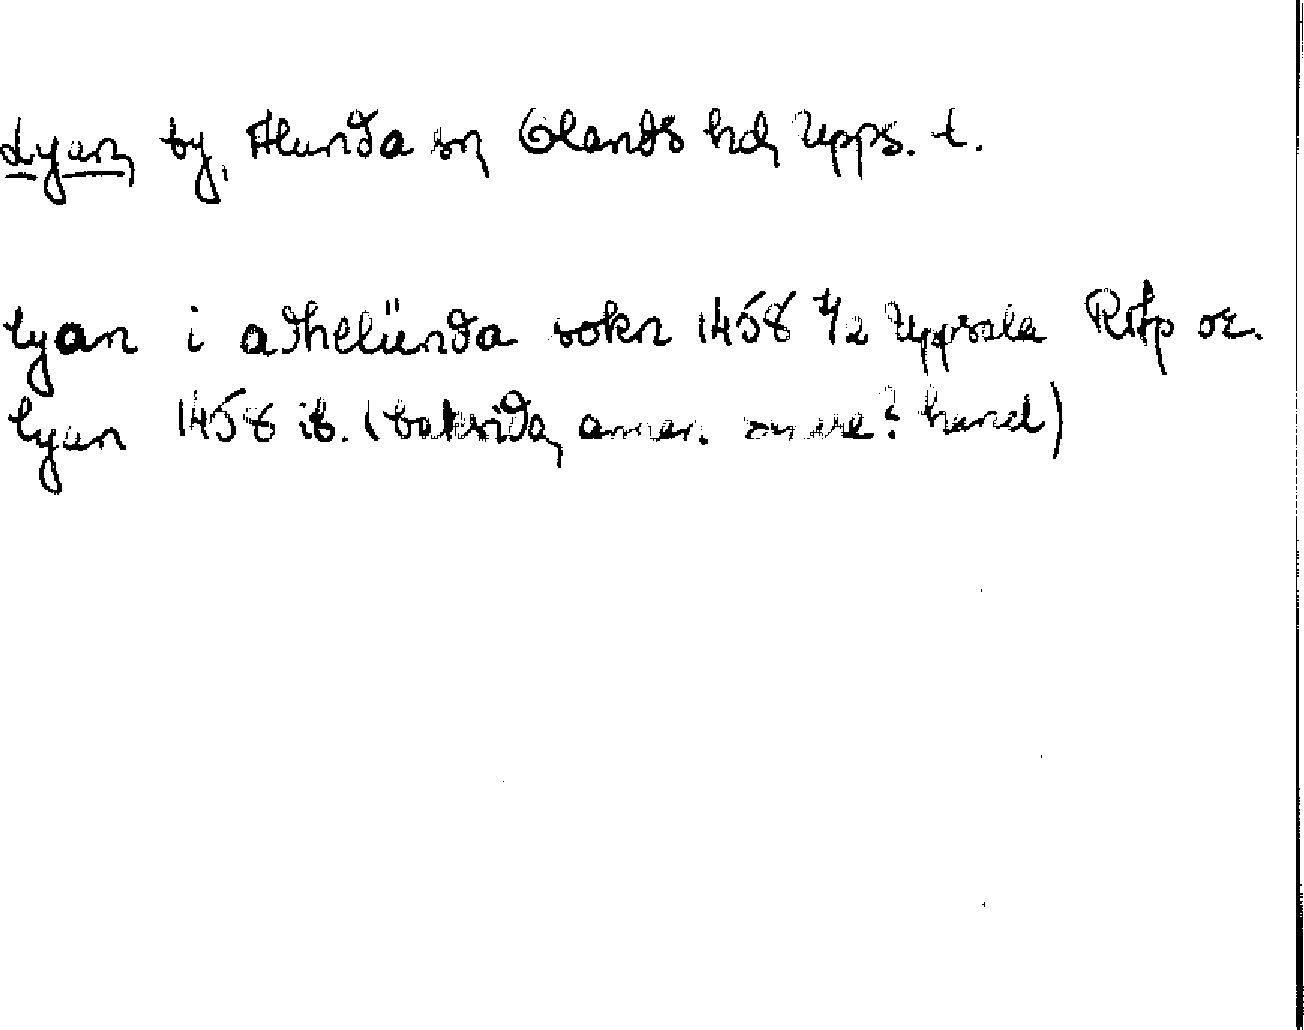 Lyan, by, Alunda sn, Olands hd, Upps. l.
lyan i adhelünda sokn 1458 4/2 Uppsala RAp or.
lyan 1458 ib. (baksida, annan hand)